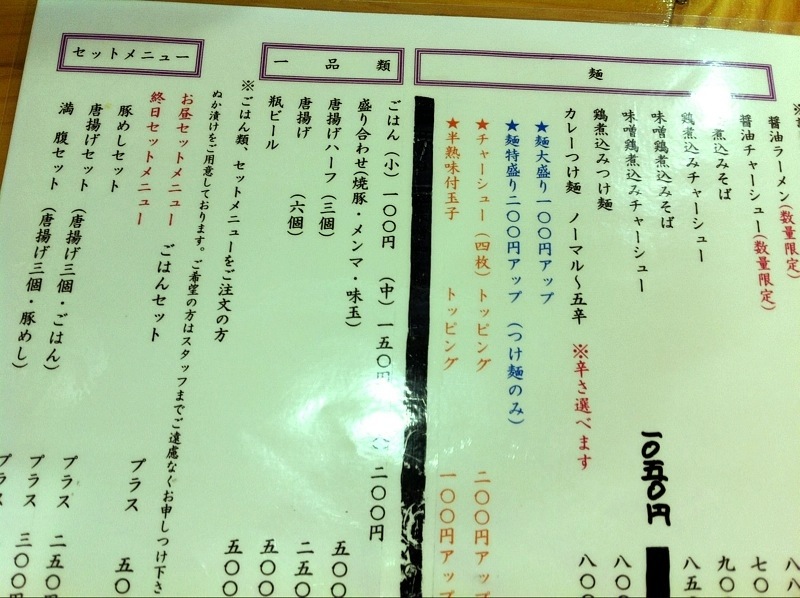 麺
醤油ラーメン(数量限定)
醤油チャーシュー(数量限定)
煮込みそば
鶏煮込みチャーシュー
味噌鶏煮込みそば
味噌鶏煮込みチャーシュー 一〇五〇円
鶏煮込みつけ麺 八〇〇
カレーつけ麺 ノーマル〜五辛 ※辛さ選べます 八〇〇
★麺大盛り一〇〇円アップ
★麺特盛り二〇〇円アップ (つけ麺のみ)
★チャーシュー(四枚)トッピング 二〇〇円アップ
★半熟味付玉子 トッピング 一〇〇円アップ
一品類
ごはん(小)一〇〇円 (中)一五〇円 二〇〇円
盛り合わせ(焼豚・メンマ・味玉) 五〇〇
唐揚げハーフ(三個) 二五〇
唐揚げ (六個) 五〇〇
瓶ビール 五〇〇
※ごはん類、セットメニューをご注文の方
ぬか漬けをご用意しております。ご希望の方はスタッフまでご遠慮なくお申しつけ下さ
セットメニュー
お昼セットメニュー ごはんセット プラス 五〇
終日セットメニュー
豚めしセット プラス 二五〇
唐揚げセット (唐揚げ三個・ごはん) プラス 三〇〇
満腹セット (唐揚げ三個・豚めし) プラス